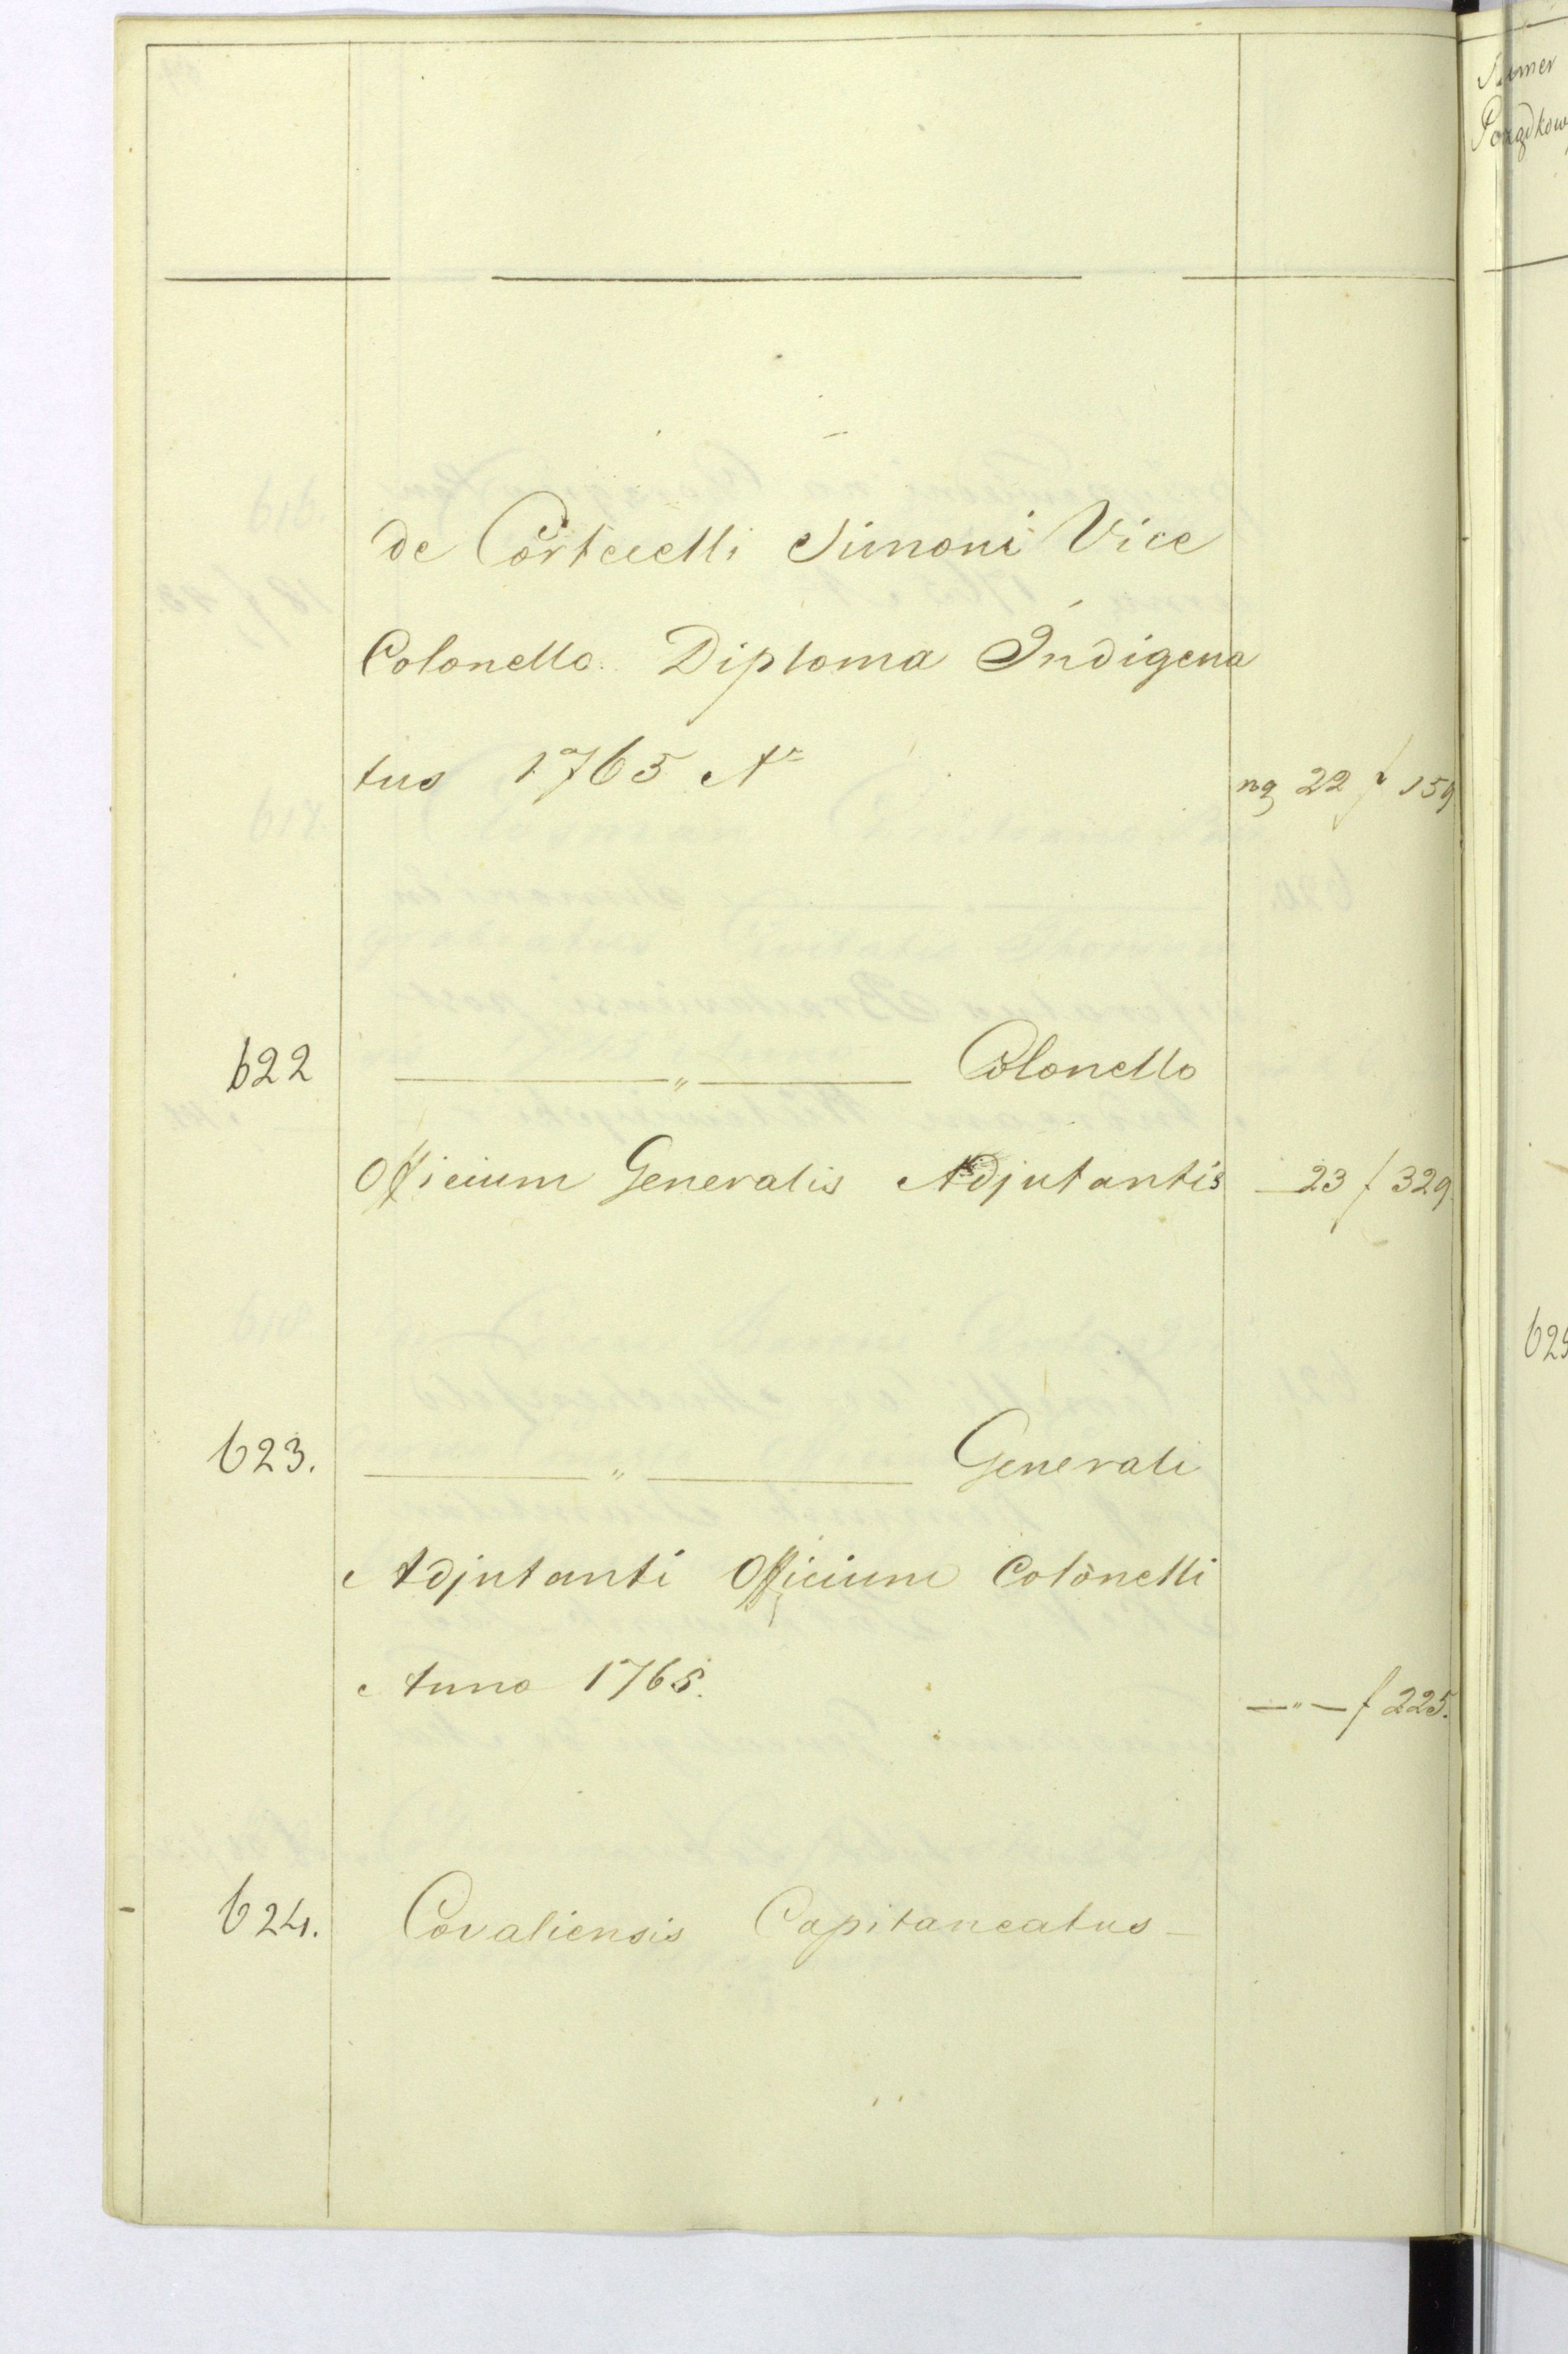 de Corticelli Simoni Vice
Colonello Diploma Indigena
tus 1765 Ao
ng 22 f 159
622 —„— Colonello
Officium Generalis Adjutantis — 23 f 329.
623. —„— Generali
Adjutanti Officium Colonelli
Anno 1765.
—„— f 225.
624. Covaliensis Capitaneatus —
Numer
Porządkow
625